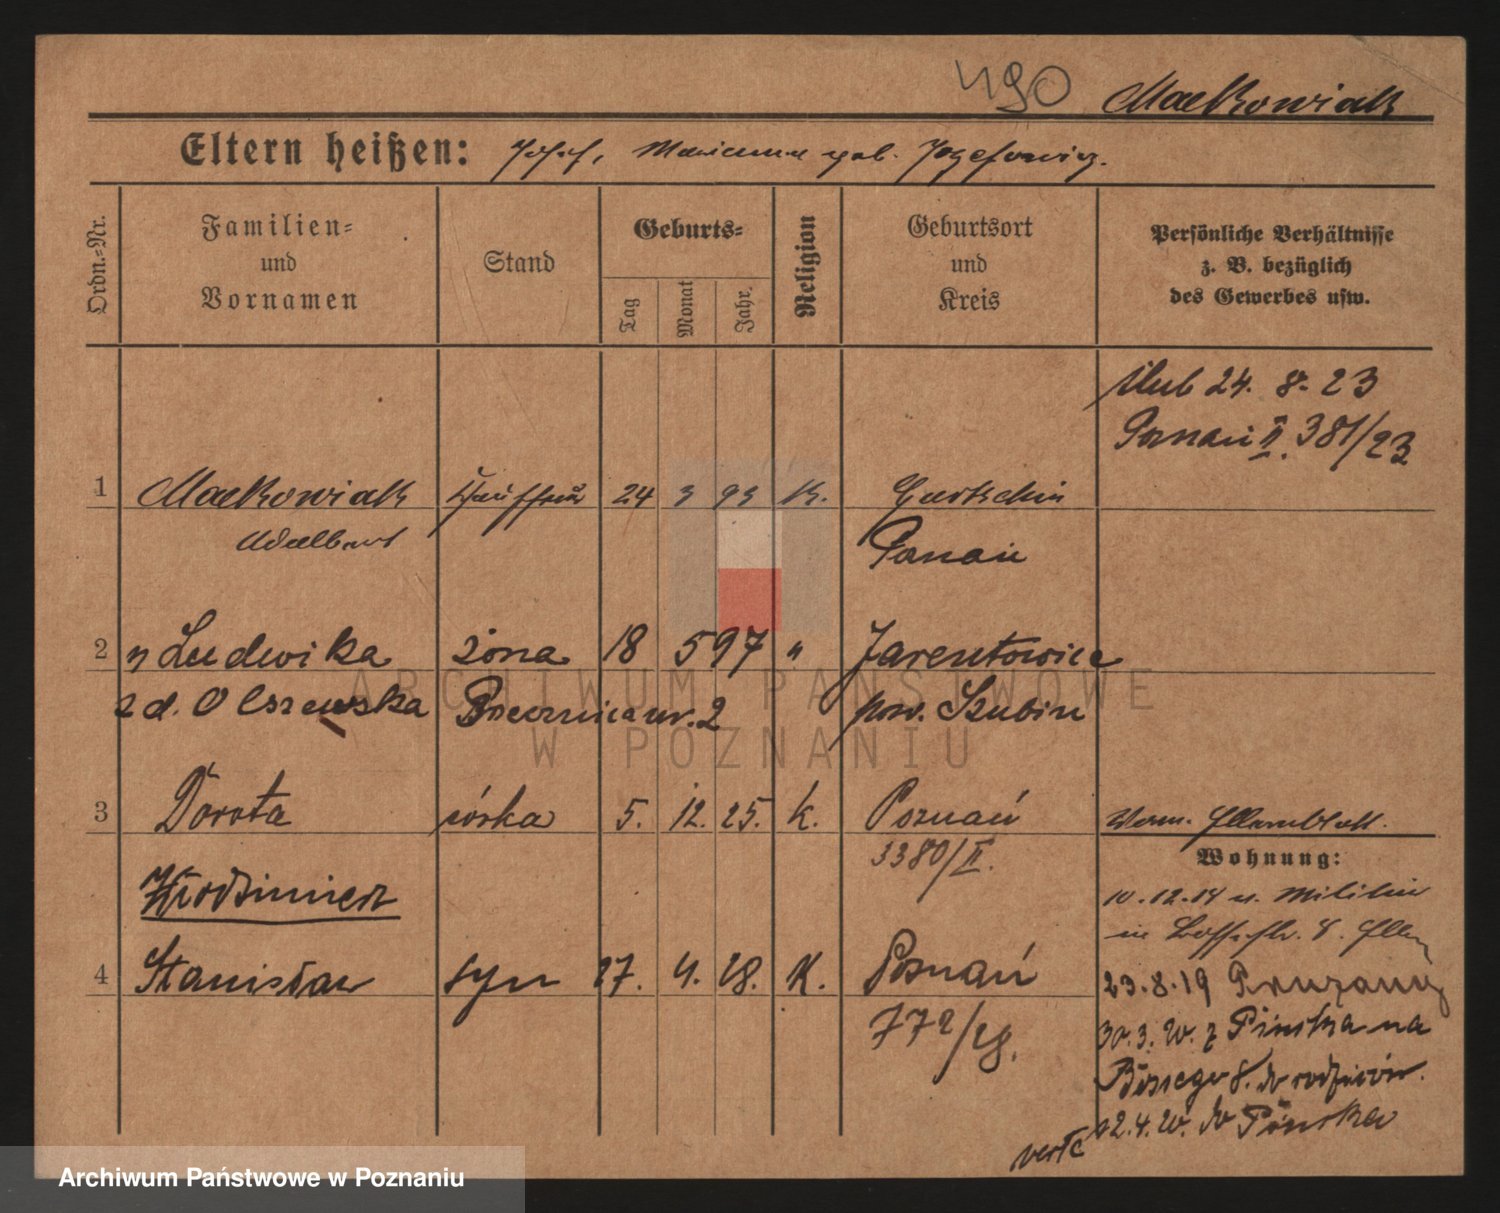 490 Maćkowiak
Eltern heißen: Josef, Marianna geb. Jozefowicz.
Ordn.-Nr.
Familien-
und
Vornamen
Stand
Geburts-
Tag
Monat
Jahr.
Religion
Geburtsort
und
Kreis
Persönliche Verhältnisse
z. B. bezüglich
des Gewerbes usw.
ślub 24. 8. 23
Poznań II. 381/23
1 Maćkowiak 24 3 93 K. Gurtschin
Adalbert Posnań
2 Ludwika żona 18 5 97 " Jarentowice
z d. Olszewska pow. Szubin
3 Dorota córka 5. 12. 25. k. Poznań
3380/II.
Wohnung:
Włodzimierz
10.12.14 z. Militär
4 Stanisław syn 27. 4. 28. K. Poznań
23.8.19 Prużany
772/28.
30.3.20. z Pińska na
8. do rodziców.
12.4.20. do Pińska
verte
ARCHIWUM PAŃSTWOWE
W POZNANIU
Archiwum Państwowe w Poznaniu